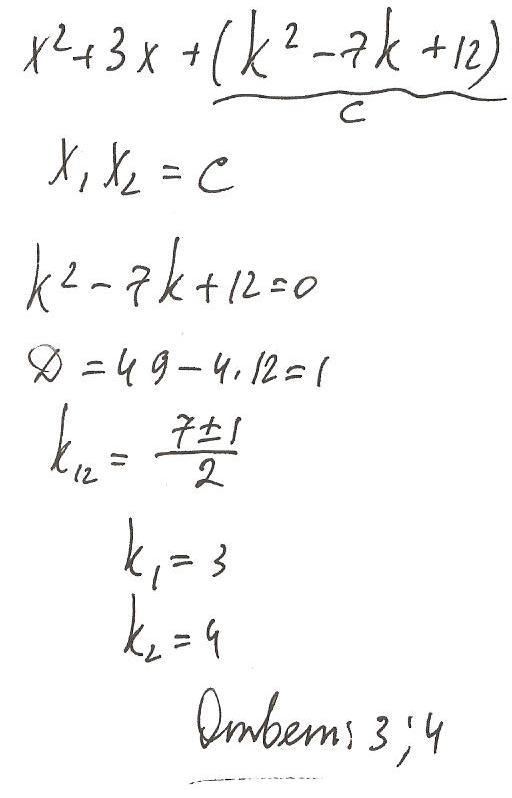 x²+3x+(k²-7k+12)
c
x₁x₂=c
k²-7k+12=0
D=49-4·12=1
k₁₂=(7±1)/2
k₁=3
k₂=4
Ответ: 3; 4